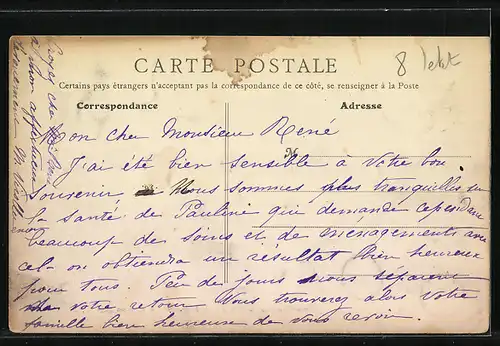 8
CARTE POSTALE
Certains pays étrangers n'acceptant pas la correspondance de ce côté, se renseigner à la Poste
Correspondance
Adresse
M
Mon cher Monsieur René
J'ai été bien sensible à votre bon
Souvenir Nous sommes plus tranquilles sur
la santé de Pauline qui demande cependant
beaucoup de soins et de menagements avec
cela on obtiendra un résultat bien heureux
pour tous. Peu de jours nous séparent
votre retour Vous trouverez alors votre
famille bien heureuse de vous revoir.
Croyez cher
à mon affectueux